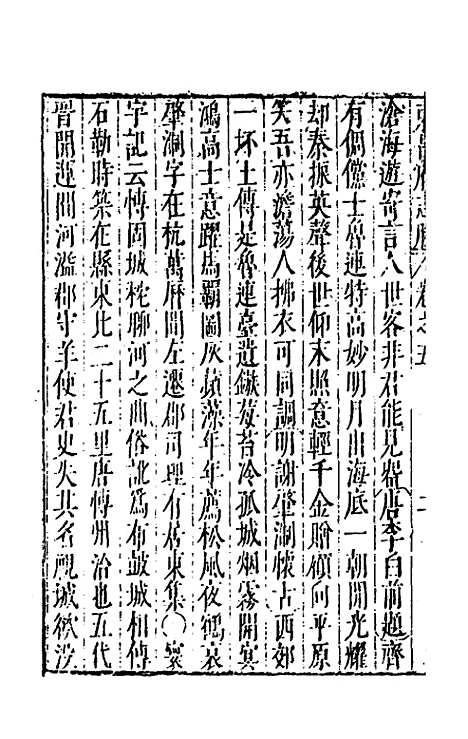 滄海遊寄言人世客非君能見啓唐李白前題齊
有倜儻士魯連特高妙明月出海底一朝開光耀
却秦振英聲後世仰末照意輕千金贈顧向平原
笑吾亦澹蕩人拂衣可同調明謝肇淛懷古西郊
一抔土傳是魯連臺遺鏃莓苔冷孤城烟霧開冥
鴻高士意躍馬霸圖灰蘋藻年年薦松風夜鶴哀
肇淛字在杭萬曆間左遷郡司理有居東集〇寰
宇記云博固城枕聊河之曲俗訛爲布鼓城相傳
石勒時築在縣東北二十五里唐博州治也五代
晉開運間河溢郡守羊使君史失其名覩城欲沒